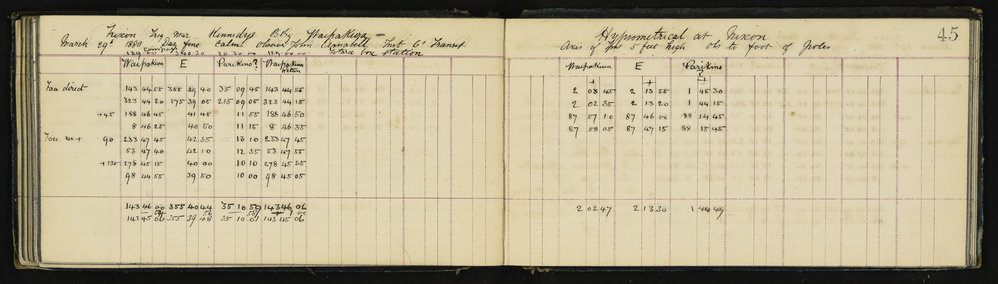 45
Nixon Trig near Kennedys Bty Waipakiga -
March 29th 1880 Day fine Calm observer John Annabell Inst 6" Transit
Totara Tree station
Waipakura E Parikino? Waipakura Return
Face direct 143 44 55 355 39 40 35 09 45 143 44 55
323 44 20 175 39 05 215 09 05 323 44 15
+45 188 46 45 41 45 11 55 188 46 50
8 46 25 40 50 11 15 8 46 35
90 233 47 45 42 35 13 10 233 47 45
53 47 40 42 10 12 35 53 47 55
+135 278 45 15 40 00 10 10 278 45 25
98 44 55 39 50 10 00 98 45 05
143 46 00 355 40 44 35 10 59 143 46 06
143 45 06 355 39 48 35 10 01 143 45 06
Hypsometrical at Nixon
Axis of Inst 5 feet high Obs to foot of Poles
Waipakura E Parikino
+ + +
2 03 45 2 13 55 1 45 30
2 02 35 2 13 20 1 44 15
87 57 10 87 46 00 88 14 45
87 58 05 87 47 15 88 15 45
2 02 47 2 13 30 1 44 49